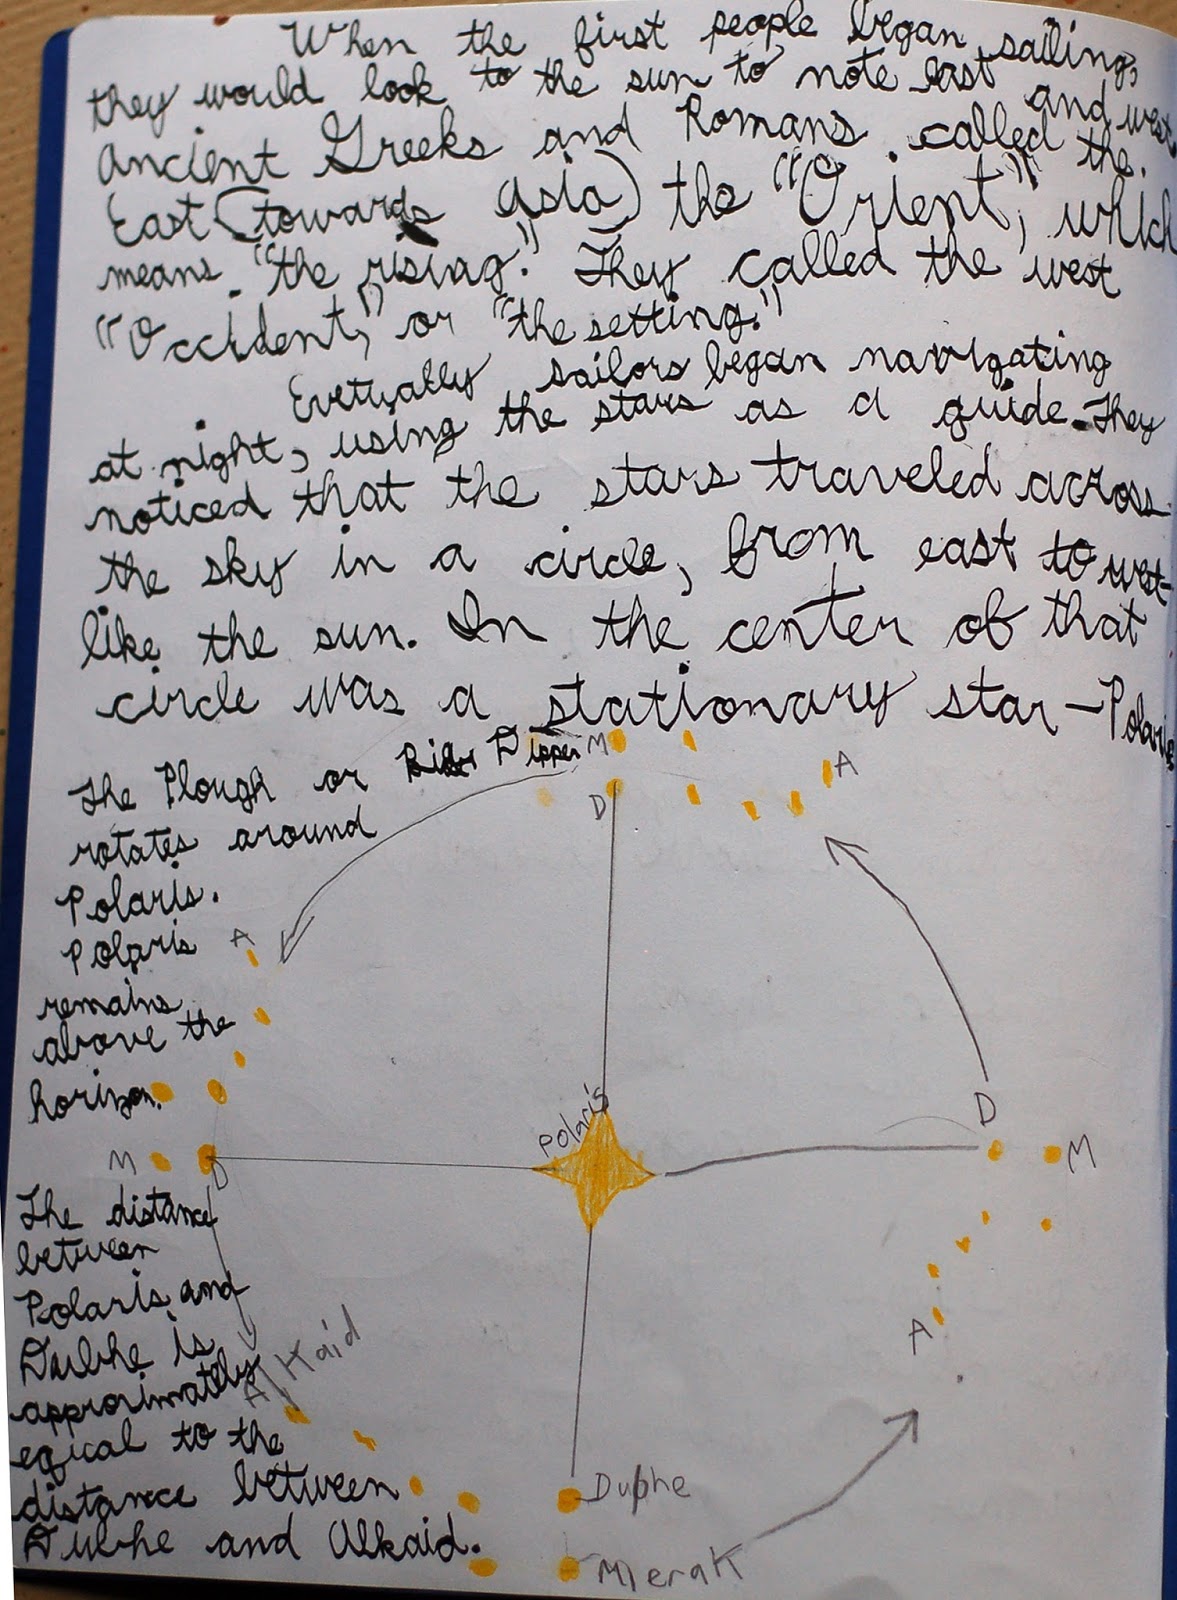 When the first people began sailing,
they would look to the sun to note east and west.
Ancient Greeks and Romans called the
East (towards Asia) the "Orient", which
means "the rising." They called the west
"Occident," or "the setting."
Evetually sailors began navigating
at night, using the stars as a guide. They
noticed that the stars traveled across
the sky in a circle, from east to west
like the sun. In the center of that
circle was a stationary star - Polaris
The Plough or Dipper
rotates around
Polaris.
Polaris
remains
above the
horizon.
M
D
A
A
M
D
Polaris
D
M
A
The distance
between
Polaris and
Dubhe is
approximatly
equal to the
distance between
Dubhe and Alkaid.
Alkaid
Dubhe
Merak